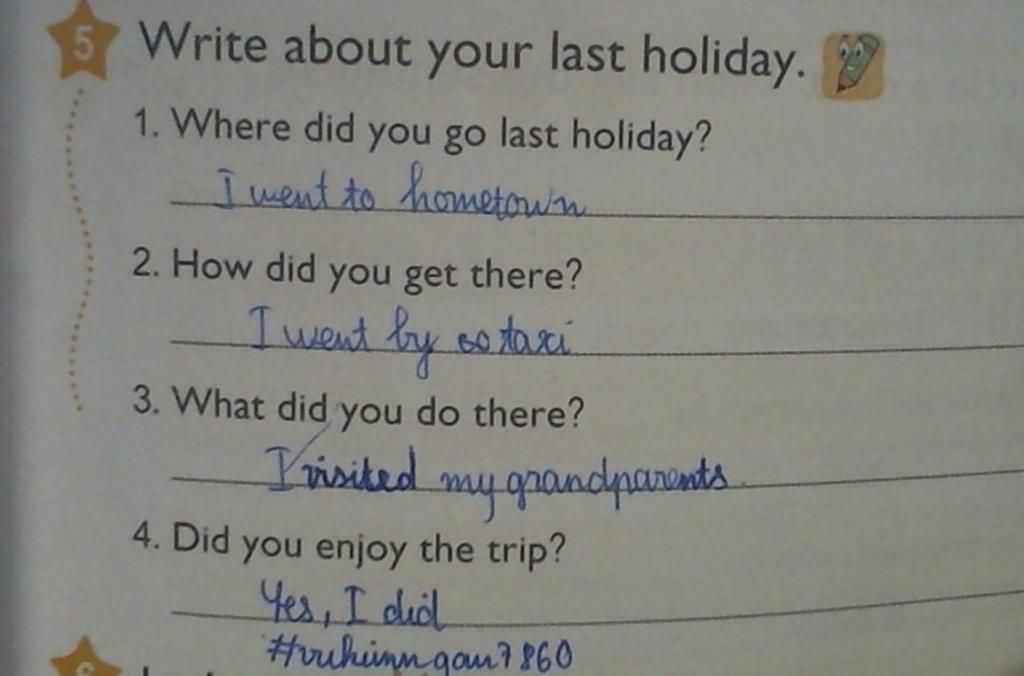 5 Write about your last holiday.
1. Where did you go last holiday?
I went to hometown
2. How did you get there?
I went by taxi
3. What did you do there?
I visited my grandparents
4. Did you enjoy the trip?
Yes, I did
6